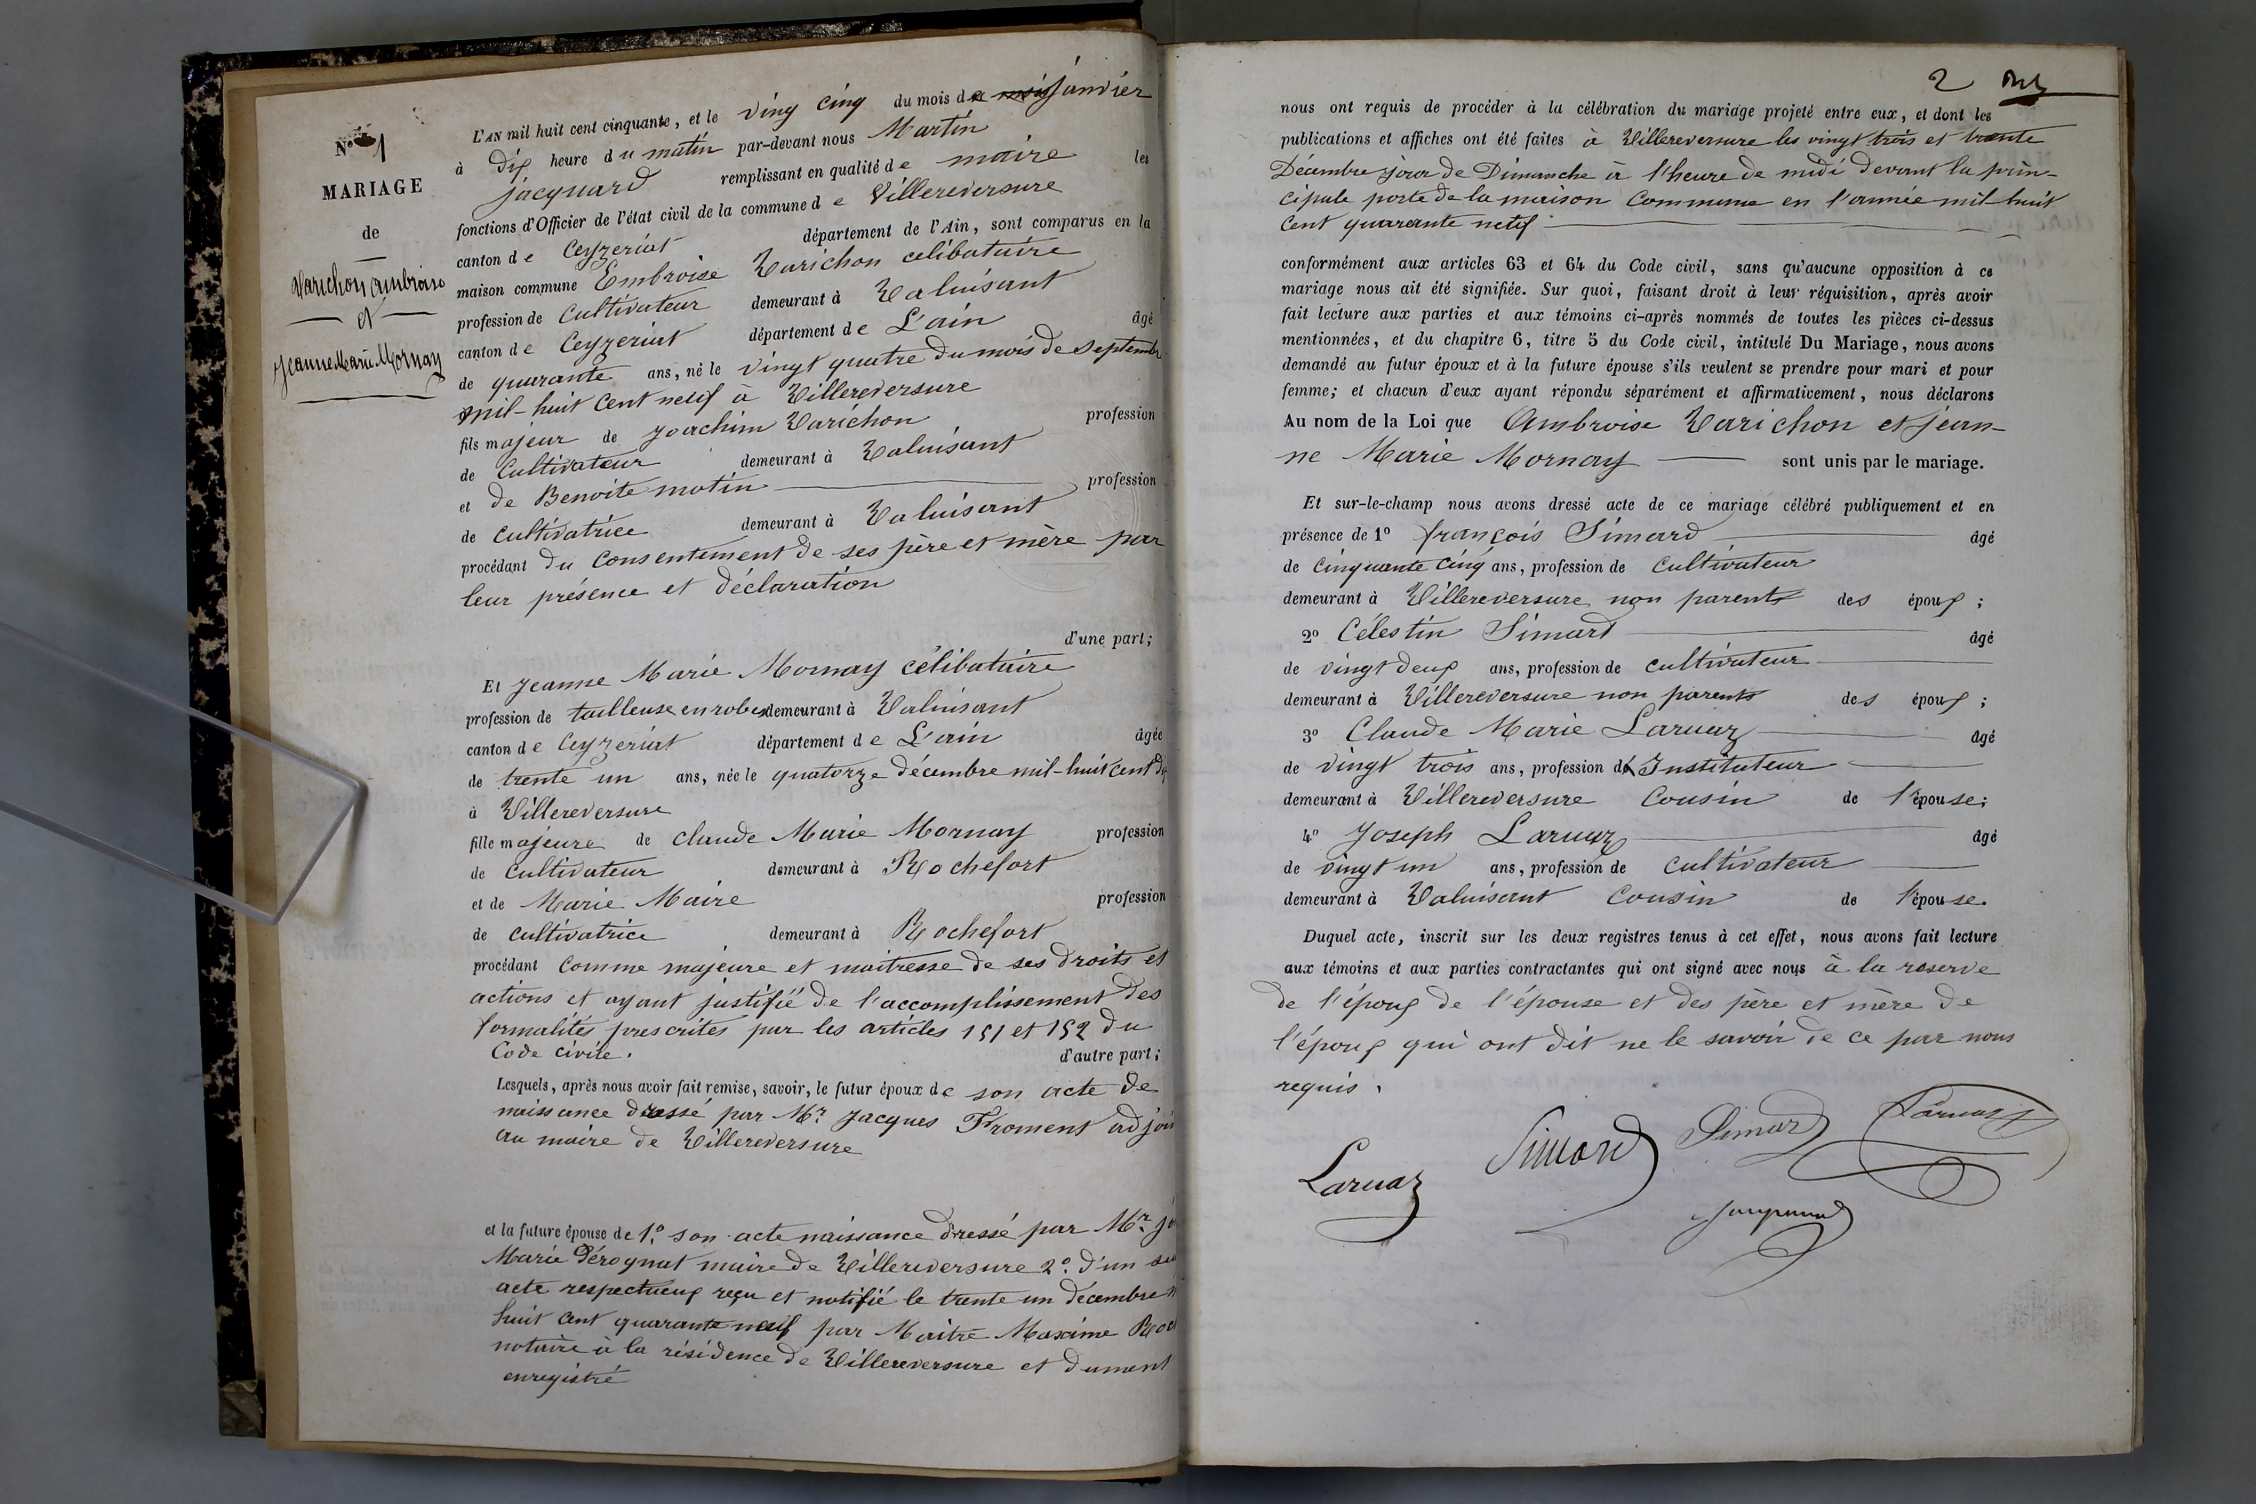 N° 1
MARIAGE
de
Varichon Ambroise
et
Jeanne Marie Mornay
L'AN mil huit cent cinquante, et le ving cinq du mois de janvier
à dix heure du matin par-devant nous Martin
jacquard remplissant en qualité de maire les
fonctions d'Officier de l'état civil de la commune de Villereversure
canton de Ceyzeriat département de l'Ain, sont comparus en la
maison commune Embroise Varichon célibataire
profession de Cultivateur demeurant à Valuisant
canton de Ceyzeriat département de L'ain âgé
de quarante ans, né le vingt quatre du mois de septembre
mil-huit cent neuf à Villereversure
fils majeur de Joachim Varichon profession
de Cultivateur demeurant à Valuisant
et de Benoite motin profession
de cultivatrice demeurant à Valuisant
procédant du consentement de ses père et mère par
leur présence et déclaration
d'une part;
Et Jeanne Marie Mornay célibataire
profession de tailleuse en robes demeurant à Valuisant
canton de Ceyzeriat département de L'ain âgée
de trente un ans, née le quatorze décembre mil-huit cent dix
à Villereversure
fille majeure de claude Marie Mornay profession
de Cultivateur demeurant à Rochefort
et de Marie Maire profession
de cultivatrice demeurant à Rochefort
procédant comme majeure et maitresse de ses droits et
actions et ayant justifié de l'accomplissement des
formalités prescrites par les articles 151 et 152 du
Code civile. d'autre part;
Lesquels, après nous avoir fait remise, savoir, le futur époux de son acte de
naissance dressé par Mr Jacques Froment adjoi
au maire de Villereversure
et la future épouse de 1.° son acte naissance dressé par Mr
Marie Pérognat maire de Villereversure 2.° d'un
acte respectueux reçu et notifié le trente un décembre
huit cent quarante neuf par Maitre Maxime
notaire à la résidence de Villereversure et dument
enregistré
2
nous ont requis de procéder à la célébration du mariage projeté entre eux, et dont les
publications et affiches ont été faites à Villereversure les vingt trois et trente
Décembre jour de Dimanche à l'heure de midi devant la prin-
cipale porte de la maison Commune en l'année mil huit
Cent quarante neuf
conformément aux articles 63 et 64 du Code civil, sans qu'aucune opposition à ce
mariage nous ait été signifiée. Sur quoi, faisant droit à leur réquisition, après avoir
fait lecture aux parties et aux témoins ci-après nommés de toutes les pièces ci-dessus
mentionnées, et du chapitre 6, titre 5 du Code civil, intitulé Du Mariage, nous avons
demandé au futur époux et à la future épouse s'ils veulent se prendre pour mari et pour
femme; et chacun d'eux ayant répondu séparément et affirmativement, nous déclarons
Au nom de la Loi que Ambroise Varichon et jean-
ne Marie Mornay sont unis par le mariage.
Et sur-le-champ nous avons dressé acte de ce mariage célébré publiquement et en
présence de 1° françois Simard âgé
de cinquante cinq ans, profession de Cultivateur
demeurant à Villereversure non parents des époux ;
2° Célestin Simard âgé
de vingt deux ans, profession de cultivateur
demeurant à Villereversure non parents des époux ;
3° Claude Marie Laruaz âgé
de vingt trois ans, profession d'Instituteur
demeurant à Villereversure Cousin de l'épouse;
4° Joseph Laruaz âgé
de vingt un ans, profession de cultivateur
demeurant à Valuisant Cousin de l'épouse.
Duquel acte, inscrit sur les deux registres tenus à cet effet, nous avons fait lecture
aux témoins et aux parties contractantes qui ont signé avec nous à la reserve
de l'époux de l'épouse et des père et mère de
l'époux qui ont dit ne le savoir de ce par nous
requis.
Laruaz Simard Simard Laruaz
Jacquard